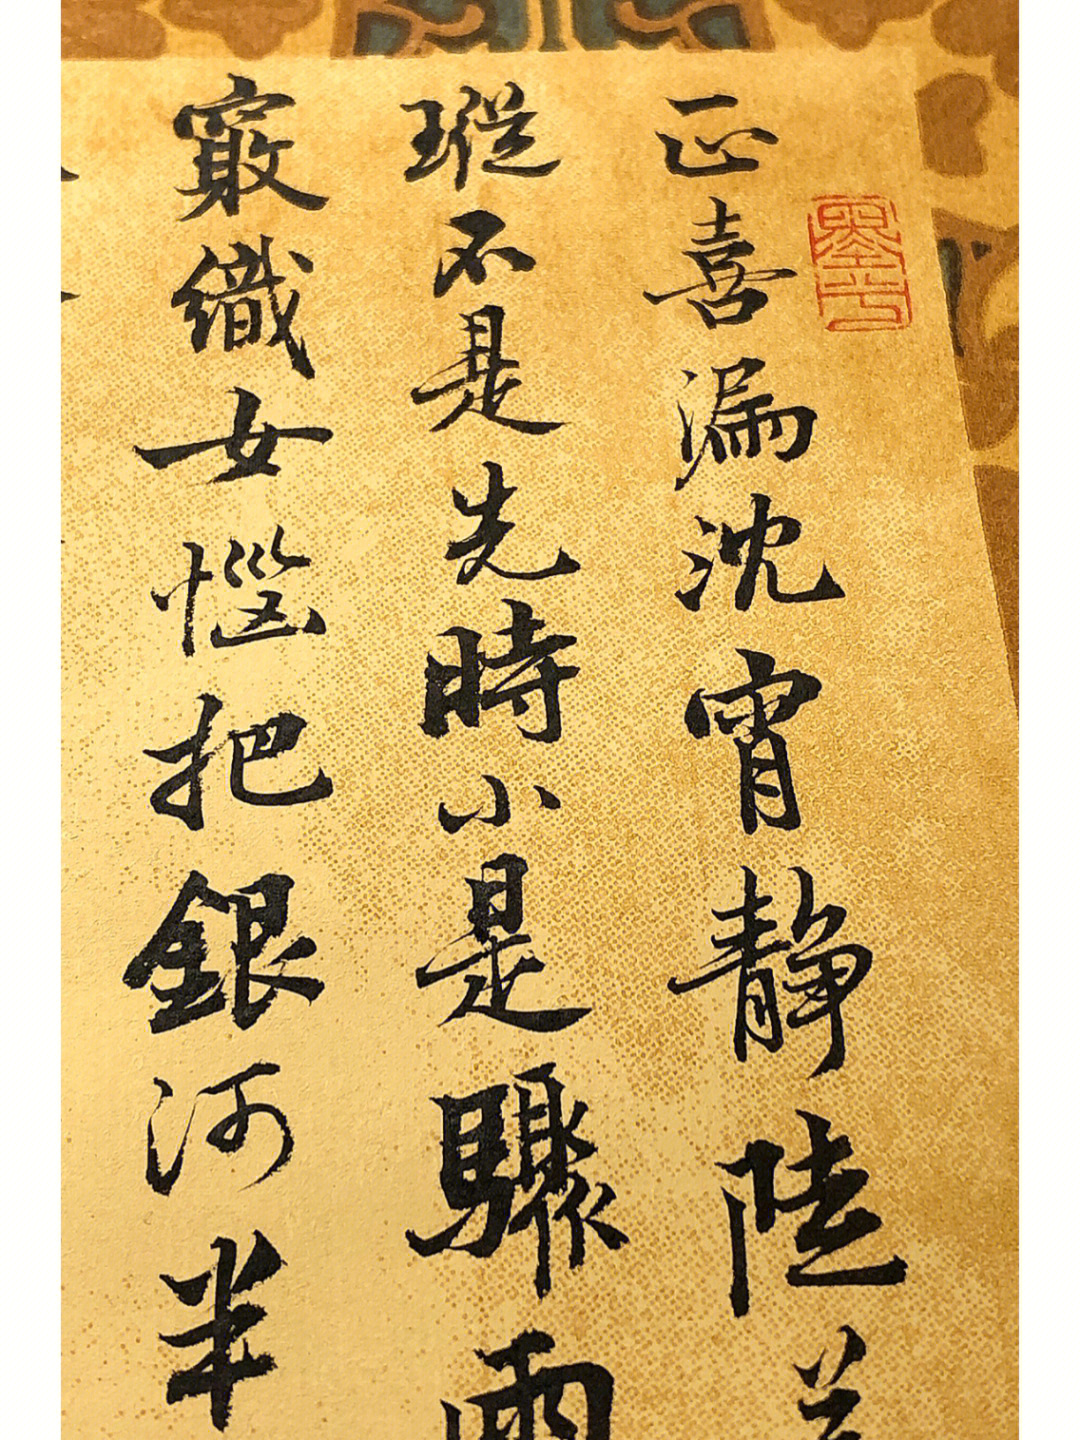 正喜漏沈宵静陡
瑽不是先時小是驟雨
織女惱把銀河半
墨